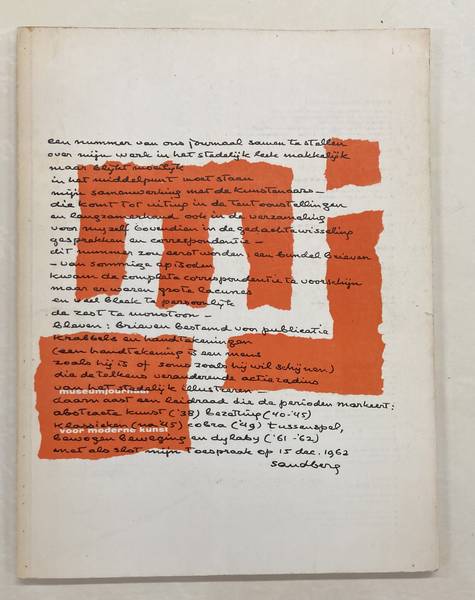 een nummer van ons journaal samen te stellen
over mijn werk in het stedelijk leek makkelijk
maar blijkt moeilijk
in het middelpunt moet staan
mijn samenwerking met de kunstenaars –
die komt tot uiting in de tentoonstellingen
en langzamerhand ook in de verzameling
voor mijzelf bovendien in de gedachtewisseling
gesprekken en correspondentie –
dit nummer zou eerst worden een bundel brieven
– van sommige episoden
kwam de complete correspondentie te voorschijn
maar er waren grote lacunes
en veel bleek te persoonlijk
de rest te monotoon –
bleven: brieven bestemd voor publicatie
krabbels en handtekeningen
(een handtekening is een mens
zoals hij is of soms zoals hij wil schijnen)
die de telkens veranderende actieradius
van het stedelijk illustreren –
museumjournaal
daarnaast een leidraad die de perioden markeert:
abstracte kunst ('38) bezetting ('40-'45)
klassieken (na '45) cobra ('49) tussenspel,
voor moderne kunst
bewogen beweging en dylaby ('61 -'62)
met als slot mijn toespraak op 15 dec. 1962
sandberg